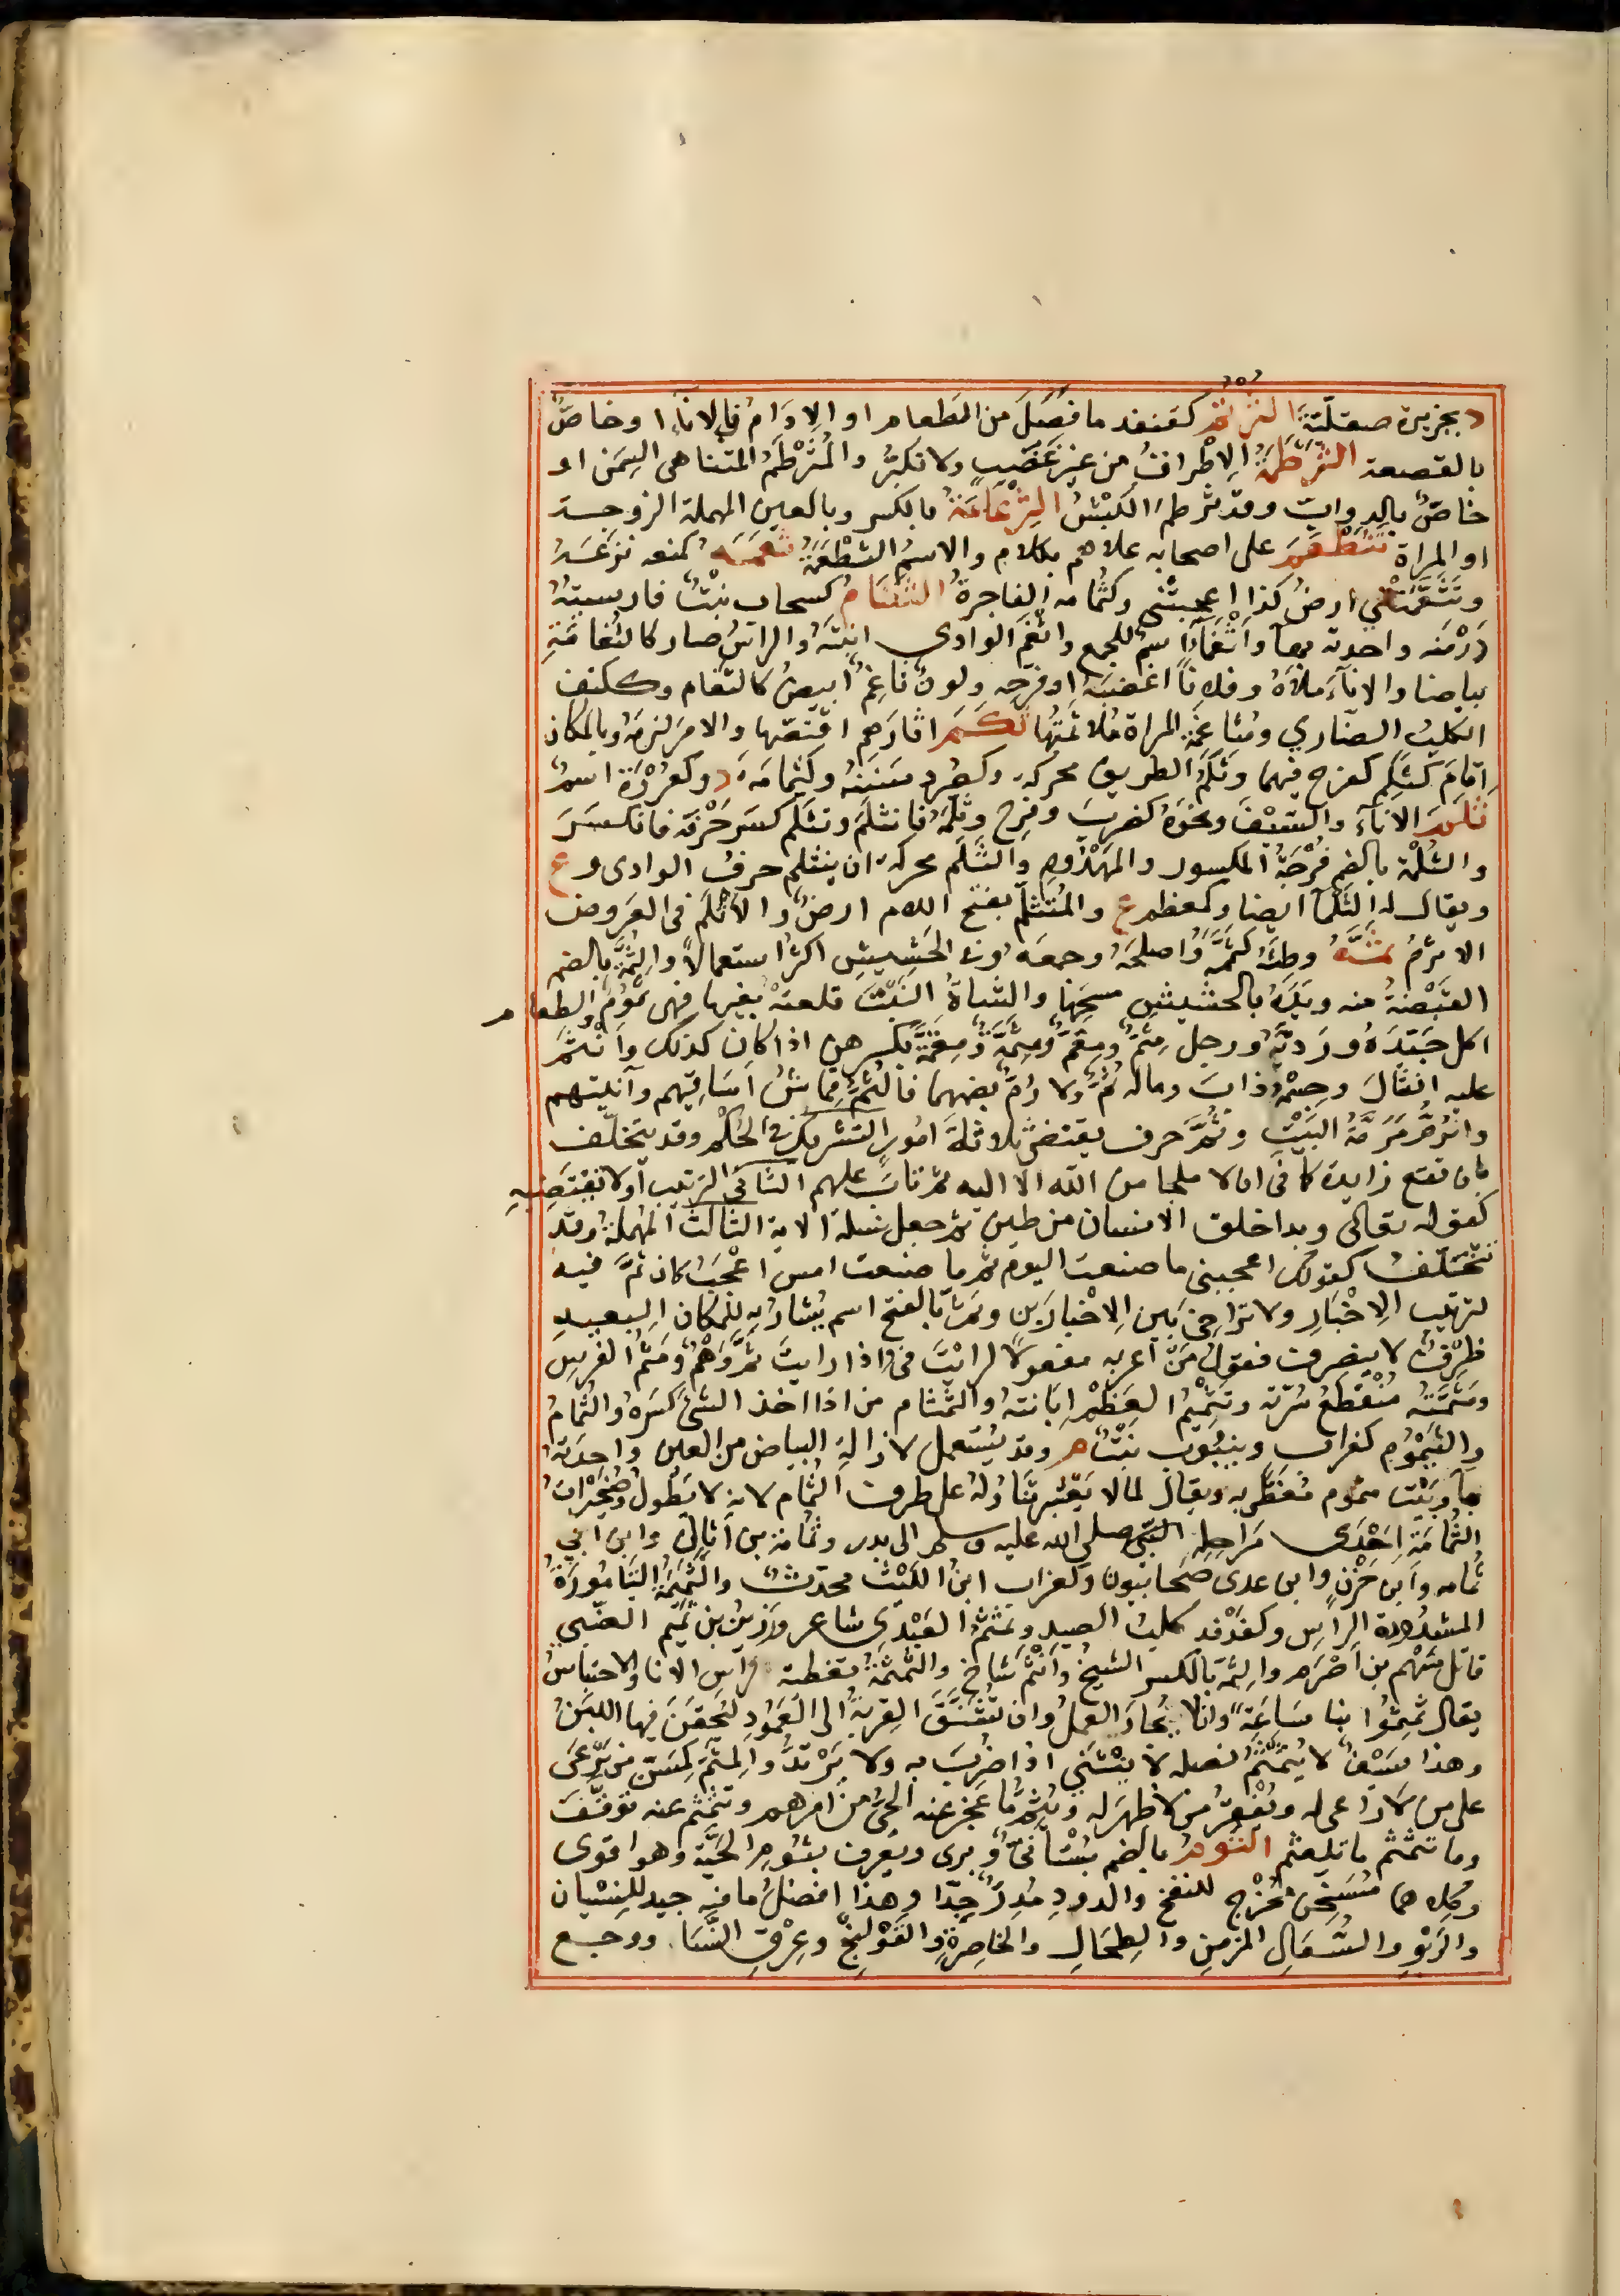 د بجزيرة صقلّيّة الثرتم كقنفذ ما فَضَلَ من الطَعام او الاِدَامُ في الاناءِ او خاصٌّ
بالقصعة الثرْطَمَةُ الاِطْراقُ من غير غَضَبٍ ولا تكبّرُ والمُثَرْطَمُ المتناهى السِمَن او
خاصٌّ بالدوابّ وقد ثرطم الكبْشُ الثِرْعَامَةُ بالكسر وبالعين المهملة الزوجة
او المراة تَثَطْعَمَ على اصحابه علاهم بكلام والاسمُ الثَطْعَمَةُ ثَعَمَه كمنعه نزَعَهُ
وتَثَعَّمَتْني ارضُ كذا اعجبتنى وكثُمامة الفاجرةُ الثَّغَام كسحاب نبْتٌ فارسيتهُ
دَرْمَنه واحدته بهاءٍ واَثْغِماءُ اسمٌ للجمع واثغم الوادى انبته والراسُ صار كالثغامَةِ
بياضا والاناءَ مَلأهُ وفلاناً اغضَبَهُ او فرّحه ولونٌ ثاغِمٌ ابيض كالثغام وككتف
الكلبُ الضّاري ومُثاغَمَةُ المراةِ مُلاثَمَتُها ثكَمَ اثارَهم اقتصّها والامرَ لزِمَهُ وبالمكان
اَقَامَ كثكم كفرح فيهما وثَكَمُ الطريق محركة وكصُرد سَنَنُهُ وكثمامة د وكعُرْوَة اسمٌ
ثلَمَ الاناءَ والسّيْفَ ونحوَهُ كضربَ وفرِح وثلّمَهُ فانثلَم وتثلَّم كسَر حَرْفَه فانكسَرَ
والثُلْمَة بالضم فُرْجَةُ المكسور والمهْدُومِ والثَّلَم محركةً ان ينثلم حرفُ الوادى وع
ويقال له الثَلْماءُ ايضا وكمعظم ع والمُتَثلَّمُ بفتح اللام ارضٌ والاَثْلَمُ فى العَروض
الاثْرَمُ ثَمَّهُ وطئَهُ كثمّمه واصلحَهُ وجمعَهُ وفى الحَشِيشِ اكثرُ استعمالاً والثُمَّةُ بالضم
القبْضَةُ منه ويَدَهُ بالحشيش مسحها والشاةُ النبْتَ قلعتهُ بفيها فهى ثَمُوم والطعام
اكل جَيِّدَهُ ورَديّهُ ورجل مِثَمٌّ ومِقَمٌّ ومِثَمَّةٌ ومِقَمَّةٌ بكسرهن اذا كان كذلك وانْثَمَّ
عليه انثالَ وجسْمُهُ ذابَ وماله ثُمٌّ ولا رُمٌّ بضمهما فالثُمُّ قماش اَسَاقِيهم وآنيتهم
والرُمُّ مَرَمَّةُ البَيْتِ وثُمَّ حرف يقتضى ثلاثةَ اُمُورٍ التشريك فى الحكم وقد يتخلّف
بان تقع زايدة كما فى ان لا ملجا من الله الا اليه ثم تابَ عليهم الثانى الترتيب او لا تقتضِيهِ
كقوله تعالى وبدا خلق الانسان من طين ثم جعل نسله الاية الثالثُ المُهملةُ وقد
تتخلّفُ كقولك اعجبنى ما صنعتَ اليوم ثم ما صنعت امس اعْجَبُ لان ثُمَّ فيه
لترتيب الاِخْبَارِ ولا تراخِيَ بَينَ الاِخْبارَيْن وثَمَّ بالفتح اسم يُشار به للمكان البعيدِ
ظرْفٌ لا ينصرف فقولُ مَنْ اَعربه مفعولاً لرايْتَ فى واذا رايتَ ثَمَّ وَهْمٌ ومَثَمُّ الفرسِ
ومَثَمَّتُهُ مُنْقطَعُ سُرّته وتثميمُ العَظْمِ اِبَانتهُ والثَّمْثام من اذا اخذ الشئَ كسَرَهُ والثُمامُ
واليَثْمُوم كغراب وينبُوت نَبْتٌ م وقد يُستعمل لازالةِ البياض من العين واحِدَتهُ
بهآءٍ وبَيْت مثموم مُغطًّى به ويقال لما لا يَعْسُر تنَاوُله على طرف الثُمام لانه لا يَطُولُ وصُخَيْراتُ
الثُمامَةِ اِحْدى مَراحِلِ النبِيِّ صلى الله عليه وسلم الى بدر وثُمامة بن اُثالٍ وابن ابي
ثُمامة وابن حَزْنٍ وابن عدى صحابيون وكغراب ابنُ الليْث محدّث والثَّمِيمَةُ التامُورَةُ
المشدُودَة الراس وكفَدْفد كلبُ الصيد وثَمْثَمٌ العَبْدي شاعر ورَزينُ بن ثميم الضّبى
قاتل سَهْم بن اَصْرَم والثِمَّة بالكسر الشيخُ واَنثمَّ شَاخَ والثَمْثمَةُ تغطية راس الانا والاحتباسُ
يقال ثَمثِمُوا بنا سَاعَةً وانْلا يُجادَ العملُ وان تُشَنَّقَ القِرْبَةُ الى العَمُود ليُحْقَنَ فيها اللبَنُ
وهذا سَيْفٌ لا يُثَمْثَمُ نصله لا يَنْثني اذا ضُرِبَ به ولا يَرْتدُّ والمِثَمُّ كمِسَنٍّ من يَرْعَى
على من لا راعى له ويُفْقِرُ من لا ظهرَ له ويَثِمُّ ما عجز عنه الحيُّ من امرهم وتثَمْثم عنه توقّفَ
وما تثمْثَم ما تلعثم الثُوم بالضم بُسْتانىٌّ وبرى ويعرف بثُوم الحيّة وهو اقوى
وكِلاهما مُسَخِّن مُخْرِج للنفخ والدودِ مُدِرٌّ جدًّا وهذا افضلُ ما فيه جيد للنِسْيان
والرَبْوِ والسُّعَالِ المزمنِ والطِحَالِ والخاصِرَةِ والقَوْلَنْجِ وعِرْقِ النَّسَا ووجع